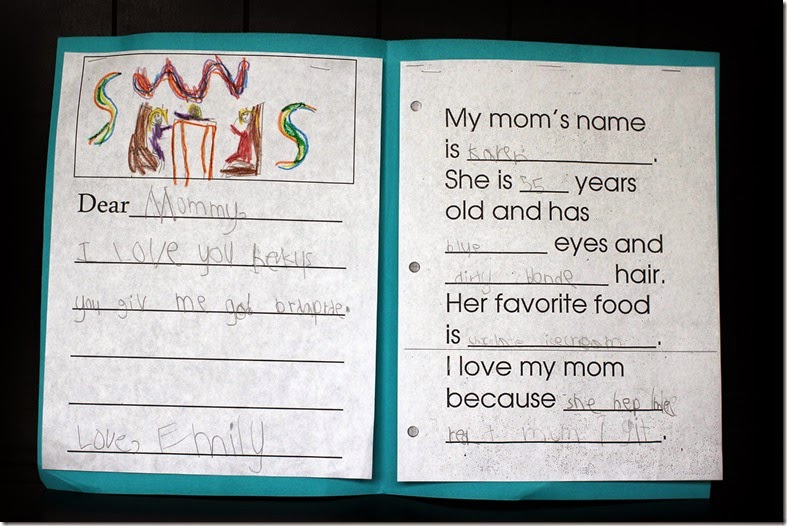 Dear Mommy,
I love you
you giv me
Love, Emily
My mom's name
is Karen.
She is 35 years
old and has
blue eyes and
dirty blonde hair.
Her favorite food
is icecream.
I love my mom
because she hep
I git.